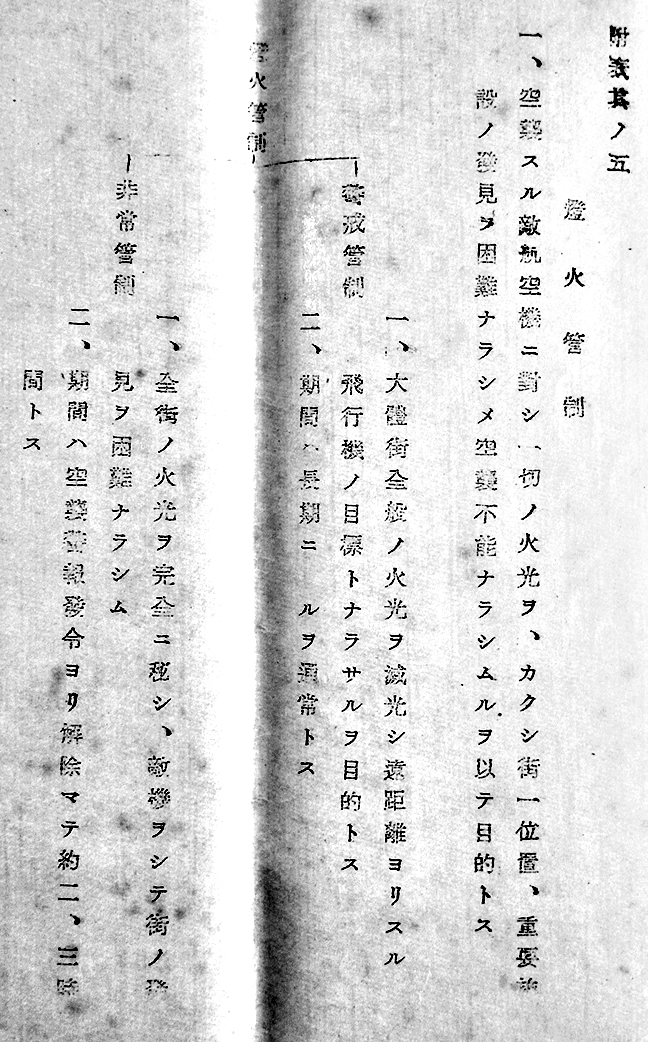 附表其ノ五
燈火管制
一、空襲スル敵航空機ニ對シ一切ノ火光ヲ、カクシ街一位置、重要施
設ノ發見ヲ困難ナラシメ空襲不能ナラシムルヲ以テ目的トス
燈火管制
警戒管制
一、大體街全般ノ火光ヲ滅光シ遠距離ヨリスル
飛行機ノ目標トナラサルヲ目的トス
二、期間ハ長期ニ ルヲ通常トス
非常管制
一、全街ノ火光ヲ完全ニ秘シ、敵機ヲシテ街ノ發
見ヲ困難ナラシム
二、期間ハ空襲警報發令ヨリ解除マテ約二、三時
間トス